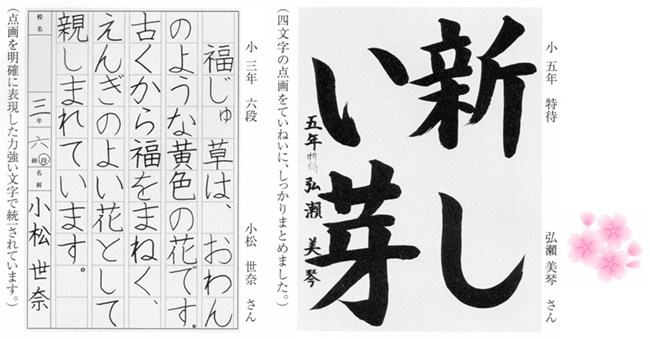 小 五年 特待 弘瀬 美琴 さん
新し
い芽
五年 特待 弘瀬 美琴
(四文字の点画をていねいに、しっかりまとめました。)
小 三年 六段 小松 世奈 さん
福じゅ草は、おわん
のような黄色の花です。
古くから福をまねく、
えんぎのよい花として
親しまれています。
校名 三年 六段級 名前 小松 世奈
(点画を明確に表現した力強い文字で統一されています。)